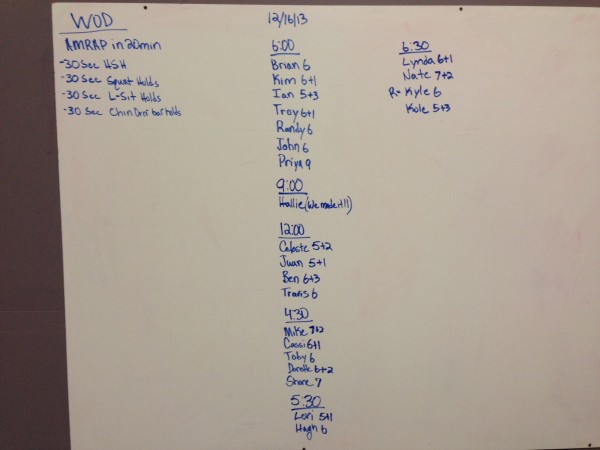 WOD
AMRAP in 20min
-30 Sec HSH
-30 Sec Squat Holds
-30 Sec L-Sit Holds
-30 Sec Chin Over bar holds
12/16/13
6:00
Brian 6
Kim 6+1
Ian 5+3
Troy 6+1
Randy 6
John 6
Priya 9
9:00
Hallie (We made it!!)
12:00
Celeste 5+2
Juan 5+1
Ben 6+3
Travis 6
4:30
Mike 7+2
Cassi 6+1
Toby 6
6+2
Shane 7
5:30
Lori 5+1
Hugh 6
6:30
Lynda 6+1
Nate 7+2
R- Kyle 6
Kole 5+3